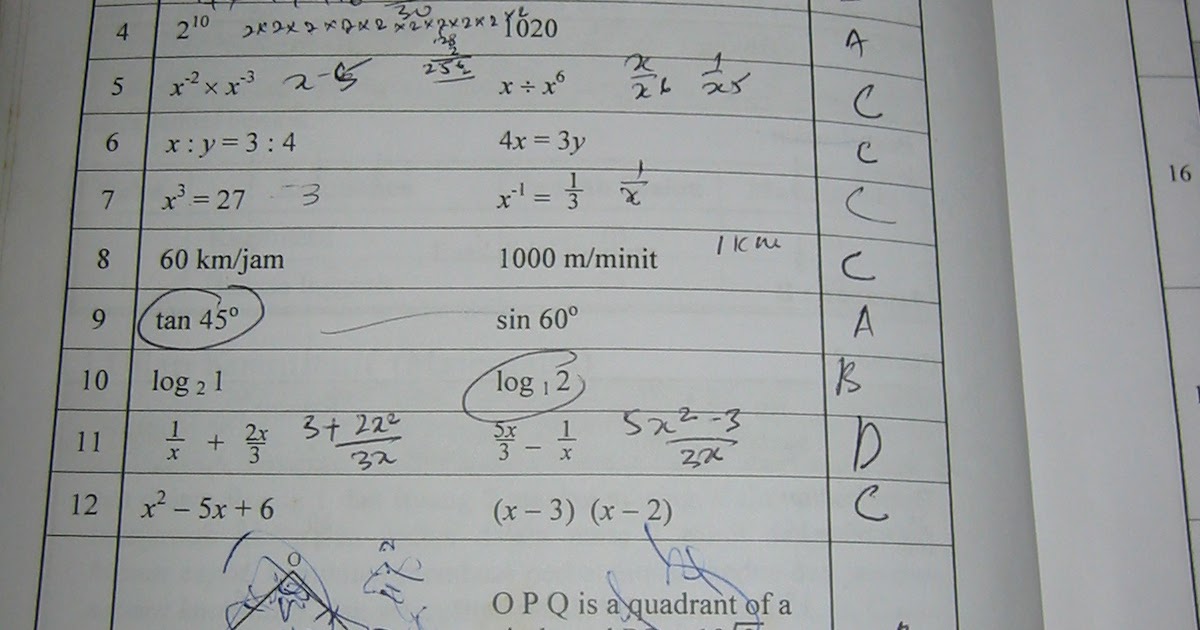 30
4 2^10 2×2×2×2×2×2×2×2×2×2 1020 A
2
256
5 x^-2 × x^-3 x-5 x ÷ x^6 x/x6 1/x5 C
6 x : y = 3 : 4 4x = 3y C
16
7 x^3 = 27 3 x^-1 = 1/3 1/x C
8 60 km/jam 1000 m/minit 1 km C
9 tan 45° sin 60° A
10 log 2 1 log 1 2 B
11 1/x + 2x/3 3+2x²/3x 5x/3 − 1/x 5x²-3/3x D
12 x² − 5x + 6 (x − 3) (x − 2) C
O
O P Q is a quadrant of a